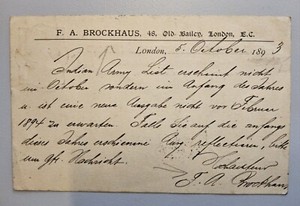 F. A. BROCKHAUS, 48, Old Bailey, London, E.C.
London, 5. October 1893
Indian Army List erscheint nicht
im October sondern im Anfang des Jahres
u. ist eine neue Ausgabe nicht vor Februar
1894 zu erwarten. Falls Sie auf die anfangs
dieses Jahres erschienene Ausg. reflectiren, bitte
um gfl. Nachricht.
F. A. Brockhaus